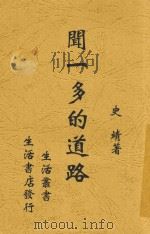 聞一多的道路
史靖著
生活叢書
生活書店發行
mtoou.info
mtoou.info